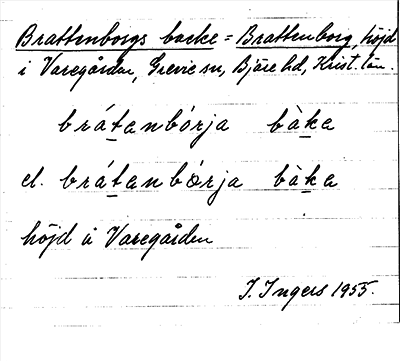 Brattenborgs backe = Brattenborg, höjd
i Varegården, Grevie sn, Bjäre hd, Krist. län.
brátanbórja bàka
el. brátanbœ́rja bàka
höjd å Varegården
I. Ingers 1955.